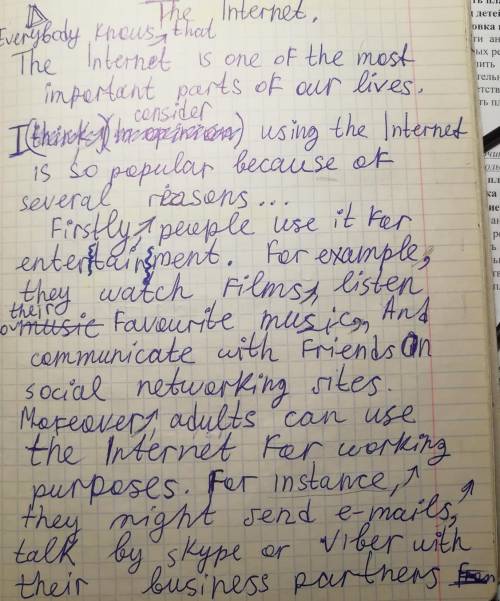 The Internet.
Everybody knows, that
The Internet is one of the most
important parts of our lives.
consider
I (think) () using the Internet
is so popular because of
several reasons...
Firstly, people use it for
entertainment. For example,
they watch films, listen
their
music favourite music, And
communicate with friends On
social networking sites.
Moreover, adults can use
the Internet for working
purposes. For instance,
they might send e-mails,
talk by skype or viber with
their business partners